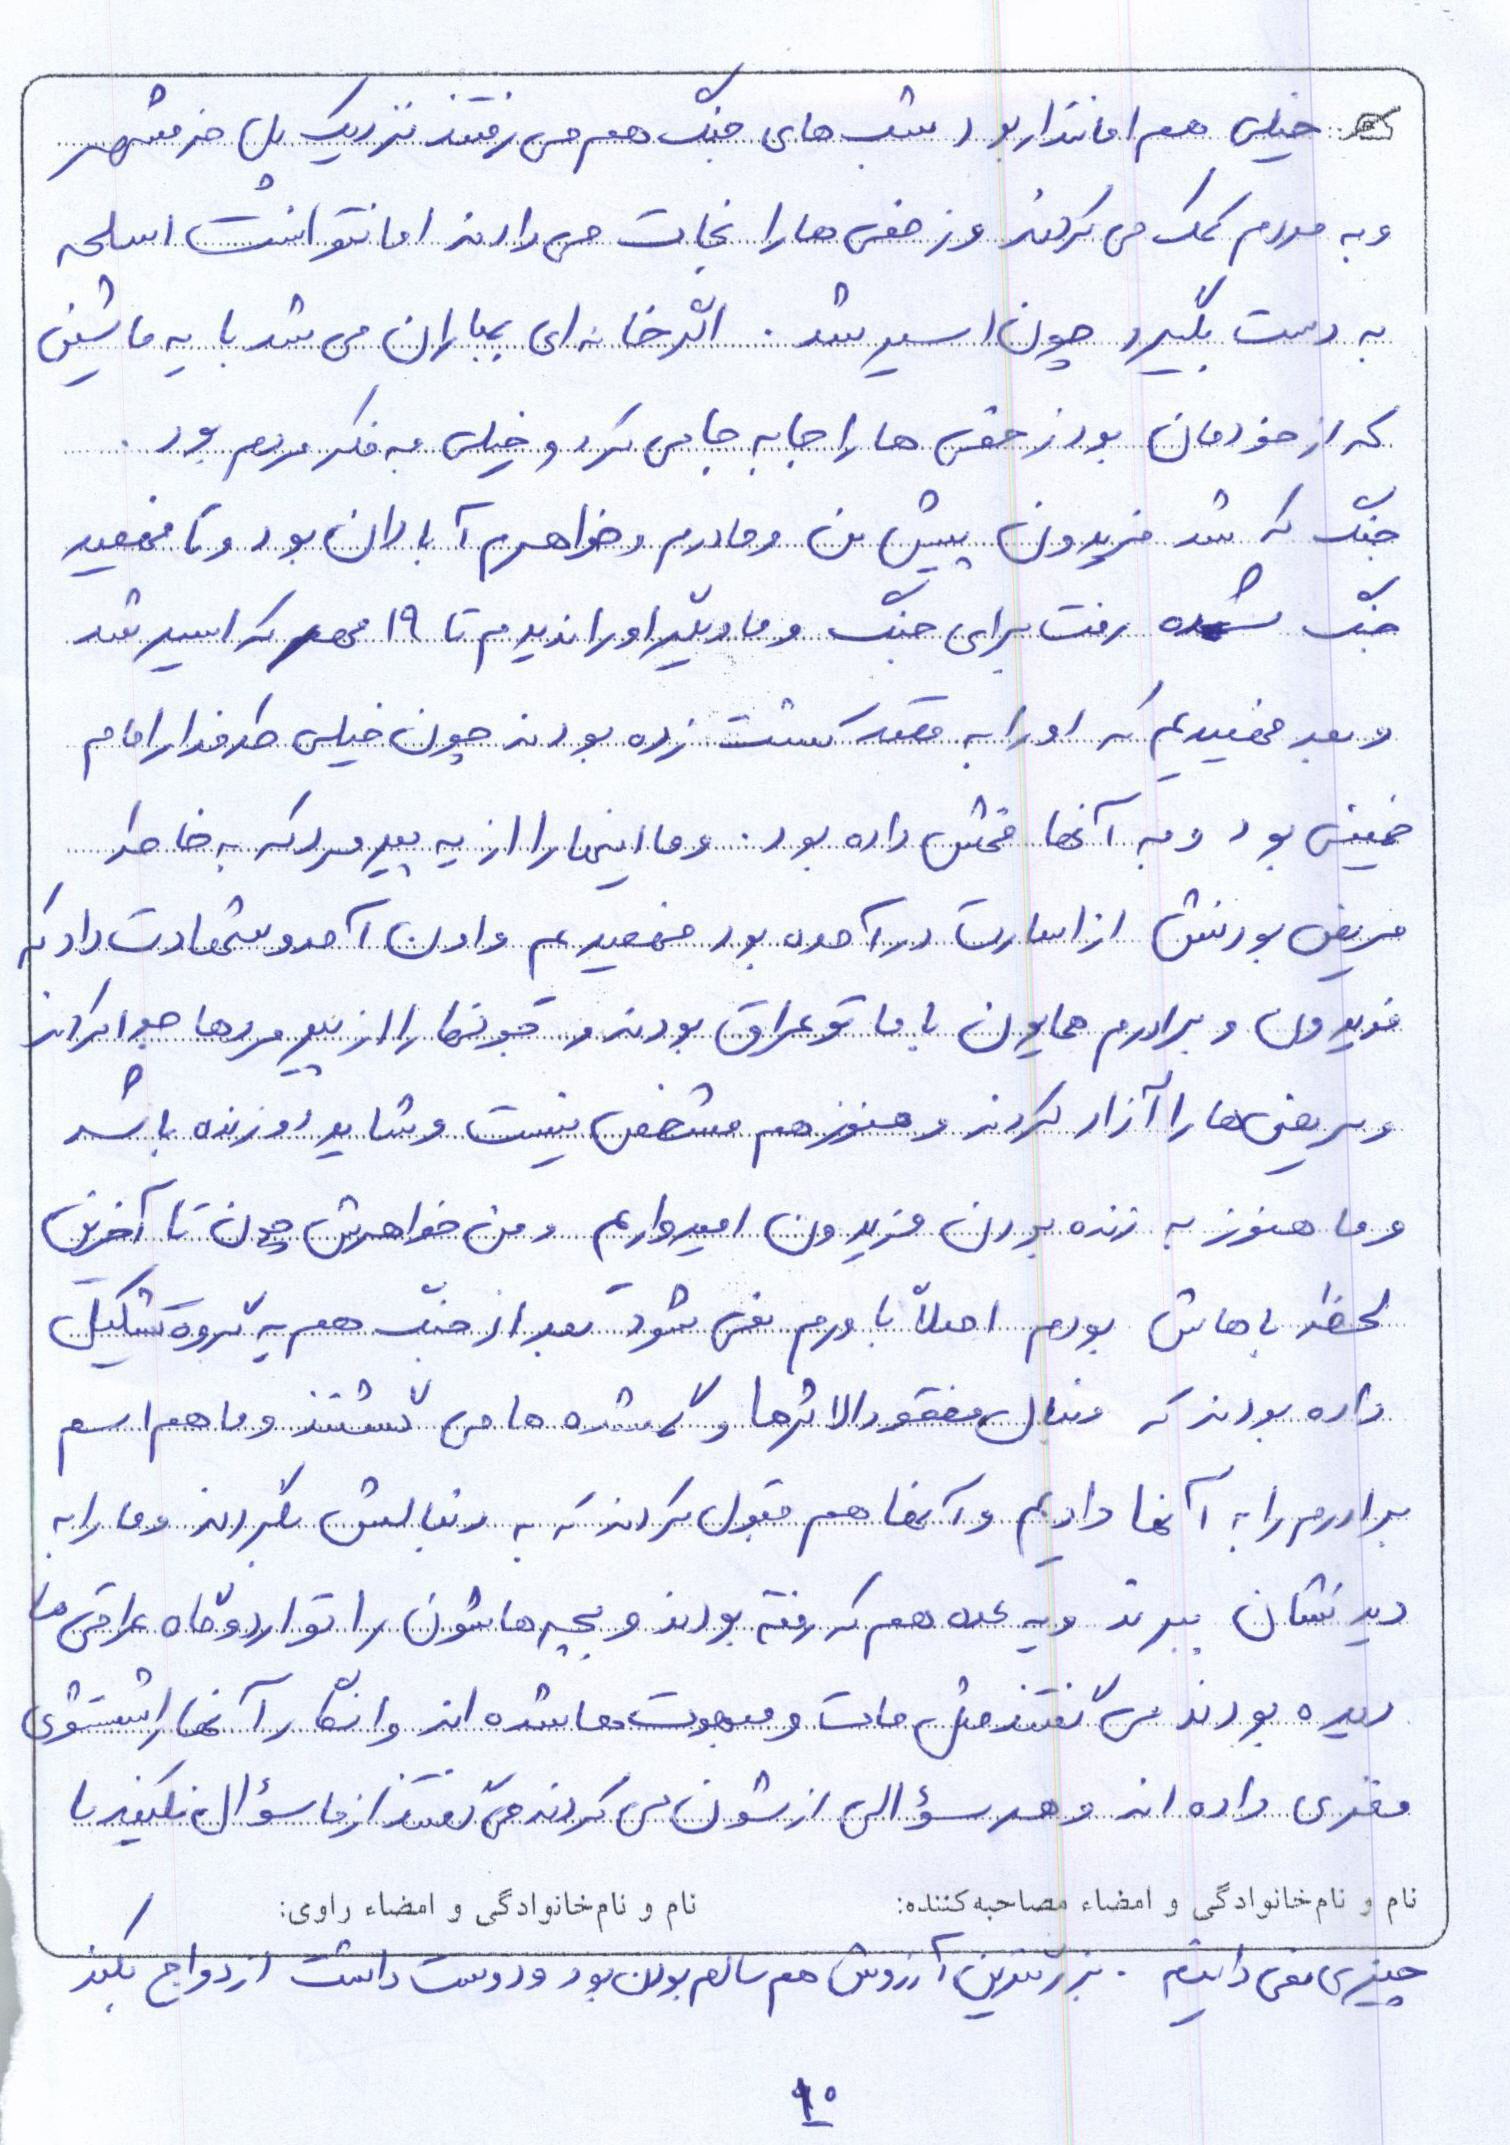 خیلی هم امانتدار بود شب های جنگ هم می رفتند نزدیک پل خرمشهر
و به مردم کمک می کردند و زخمی ها را نجات می دادند اما نتوانست اسلحه
به دست بگیرد چون اسیر شد . اگر خانه ای بمباران می شد با یه ماشین
که از خودمان بود زخمی ها را جا به جا می کرد و خیلی به فکر مردم بود .
جنگ که شد فریدون پیش من و مادرم و خواهرم آبادان بود و تا فهمید
جنگ شده رفت برای جنگ و ما دیگر او را ندیدیم تا ۱۹ مهر که اسیر شد
و بعد فهمیدیم که او را به قصد کشت زده بودند چون خیلی طرفدار امام
خمینی بود و به آنها فحش داده بود . و ما اینها را از یه پیرمرد که به خاطر
مریض بودنش از اسارت در آمده بود فهمیدیم و اون آمد و شهادت داد که
فریدون و برادرم همایون با ما تو عراق بودند و جوونها را از پیرمردها جدا کردند
و مریض ها را آزاد کردند و هنوز هم مشخص نیست و شاید زنده باشد
و ما هنوز به زنده بودن فریدون امیدواریم و من خواهرش چون تا آخرین
لحظه باهاش بودم اصلاً باورم نمی شود بعد از جنگ هم یه گروه تشکیل
داده بودند که دنبال مفقودالاثرها و گمشده ها می گشتند و ما هم اسم
برادرم را به آنها دادیم و آنها هم قبول کردند که به دنبالش بگردند و ما را به
دیدنشان ببرند و یه عده هم که رفته بودند و بچه هاشون را تو اردوگاه عراقی ها
دیده بودند می گفتند مثل مات و مبهوت ها شده اند و انگار آنها را شستشوی
مغزی داده اند و هر سؤالی ازشون می کردند می گفتند از ما سؤال نکنید ما
نام و نام‌خانوادگی و امضاء مصاحبه‌کننده: نام و نام‌خانوادگی و امضاء راوی:
چیزی نمی دانیم . بزرگترین آرزوش هم سالم بودن بود و دوست داشت ازدواج بکند
۱۰